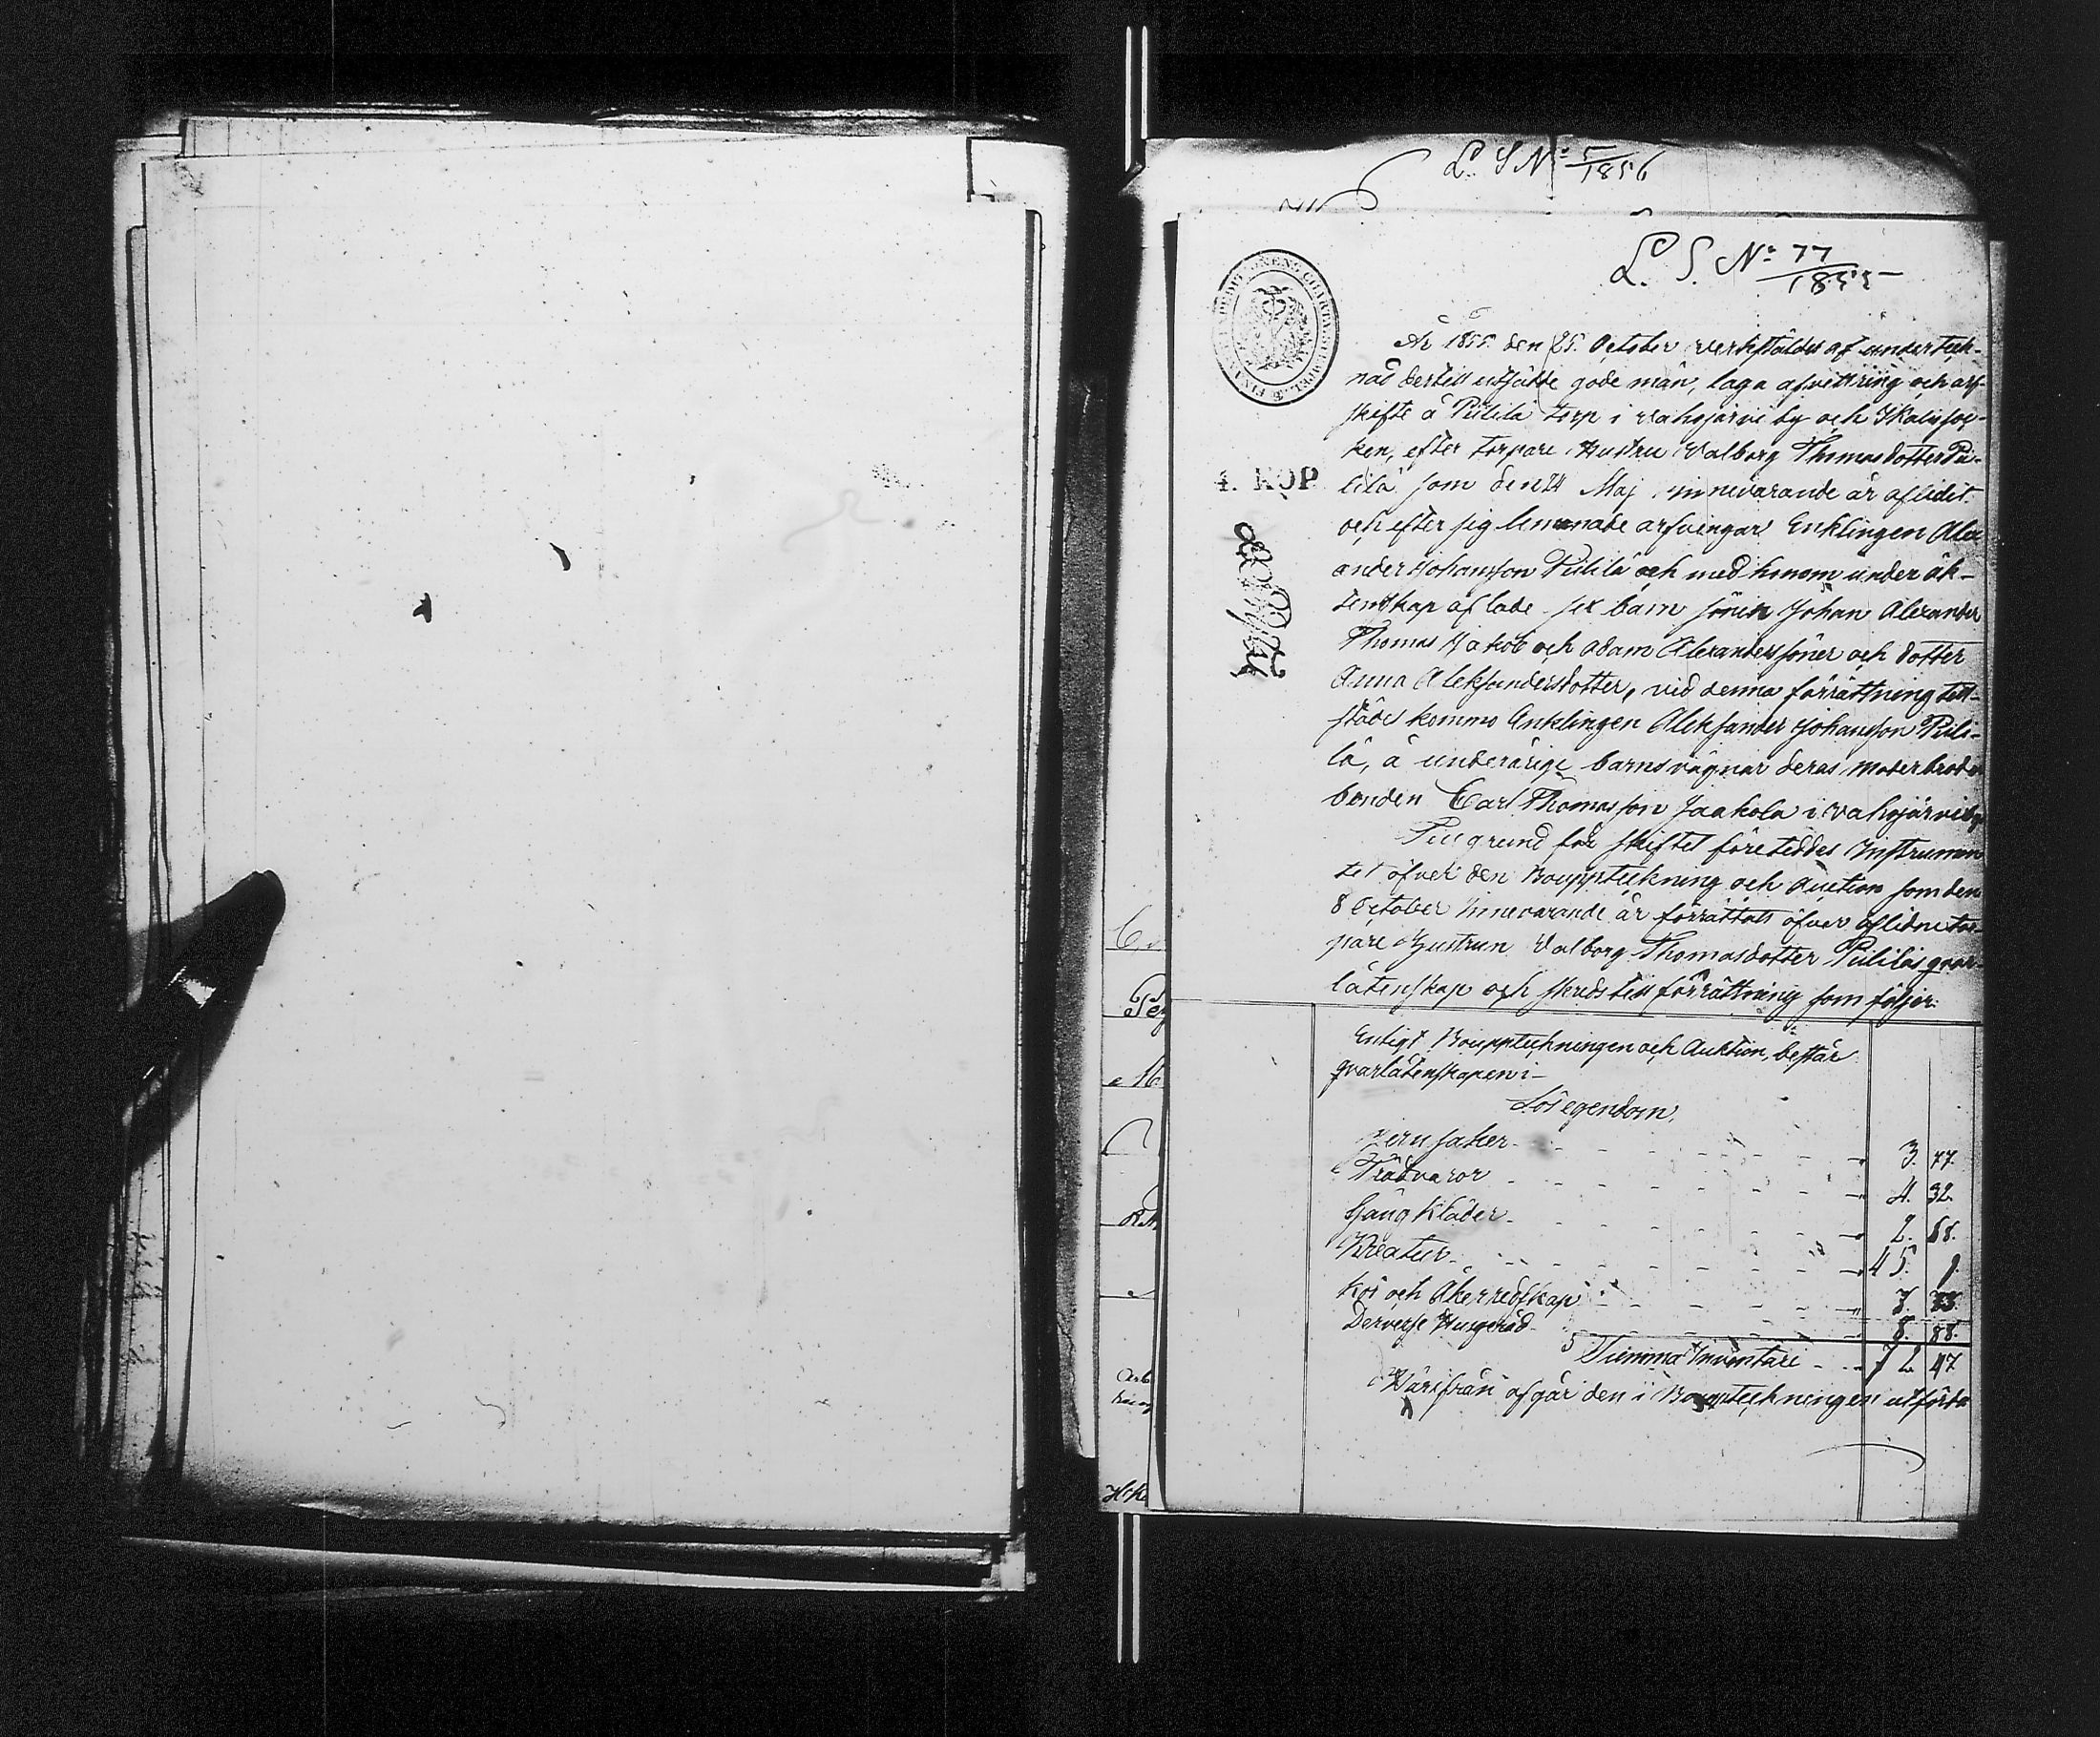 L. S. Nº 5/1856
L. S. Nº 77/1855
4. KOP
År 1855. den 25. October verkstäldes af underteck-
nad dertill utsatte gode män, laga afvittring och arf-
skifte å Pülilä torp i Vahojärvi by och Ikalis soc-
ken, efter torpare Hustru Valborg Thomasdotter Pü-
lilä som den 24 Maj innevarande år aflidit
och efter sig lemnade arfvingar Enklingen Alex
ander Johansson Pülilä och med honom under äk-
tenskap aflade sex barn sönin Johan Alexander
Thomas Jakob och Adam Alexanderssöner och dotter
Anna Aleksandersdotter, vid denna förrättning till-
städes kommo Enklingen Aleksander Johansson Püli-
lä, å underårige barns vägnar deras moderbroder
bonden Carl Thomasson Jaakola i Vahojärvi by
Till grund för skiftet företeddes Instrumen
tet öfver den Bouppteckning och Auction som den
8 October innevarande år förrättats öfver aflidne tor-
pare Hustrun Valborg Thomasdotter Püliläs qvar-
låtenskap och skreds till förrättning som följer:
Enligt Bouppteckningen och Auktion, består
qvarlåtenskapen i
Lös egendom,
Jern saker 3. 77.
Trädvaror 4. 32.
Gång Kläder 2. 68.
Kreatur 45. 9.
Kör och Åkerredskap 7. 73.
Derverse Husgeråd 8. 88.
Summa Inventarii 72 47
Härifrån afgår den i Bouppteckningen utförda